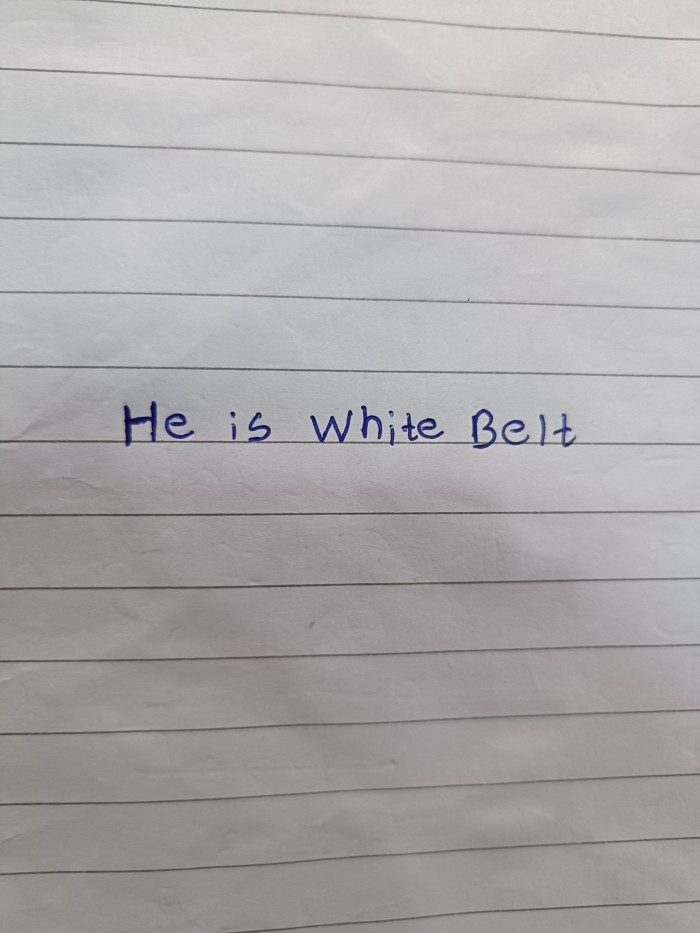 He is White Belt